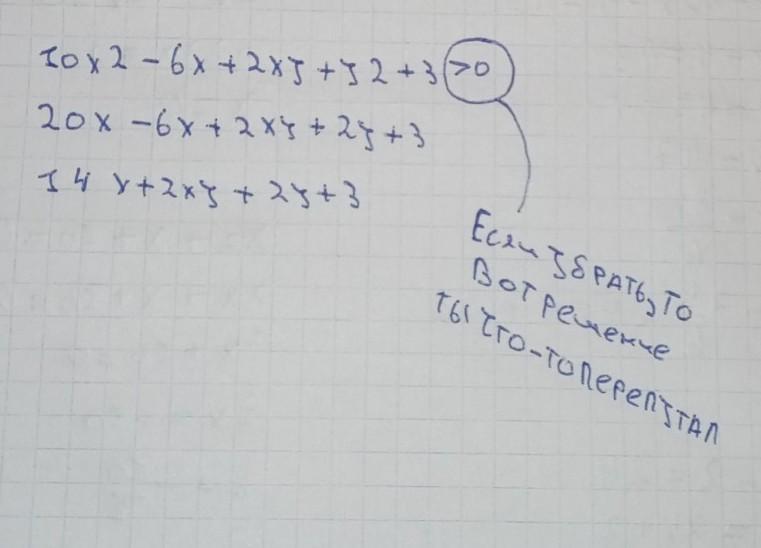 10x2 - 6x + 2xy + y2 + 3 >0
20x - 6x + 2xy + 2y + 3
14x + 2xy + 2y + 3
Если убрать, то
вот решение
ты что-то перепутал